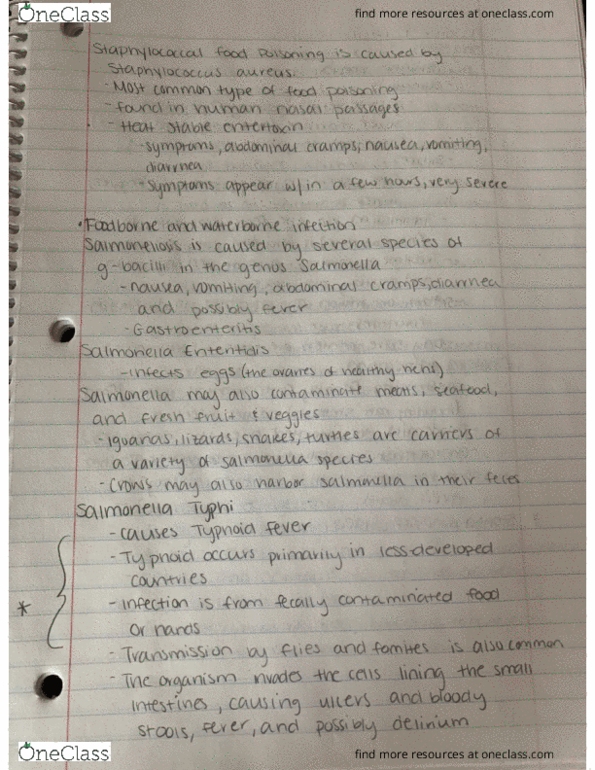 OneClass
find more resources at oneclass.com
Staphylococcal food poisoning is caused by
Staphylococcus aureus.
- Most common type of food poisoning
- found in human nasal passages
- Heat stable entertoxin
- symptoms, abdominal cramps, nausea, vomiting,
diarrhea
- symptoms appear w/in a few hours, very severe
• Foodborne and waterborne infection
Salmonellosis is caused by several species of
g-bacilli in the genus Salmonella
- nausea, vomiting, abdominal cramps, diarrhea
and possibly fever
- Gastroenteritis
Salmonella Enteritidis
- infects eggs (the ovaries of healthy hens)
Salmonella may also contaminate meats, seafood,
and fresh fruit & veggies
- iguanas, lizards, snakes, turtles are carriers of
a variety of salmonella species
- crows may also harbor salmonella in their feces
Salmonella Typhi
- causes Typhoid fever
- Typhoid occurs primarily in less-developed
countries
* - infection is from fecally contaminated food
or hands
- Transmission by flies and fomites is also common
- The organism invades the cells lining the small
intestines, causing ulcers and bloody
stools, fever, and possibly delirium
OneClass
find more resources at oneclass.com